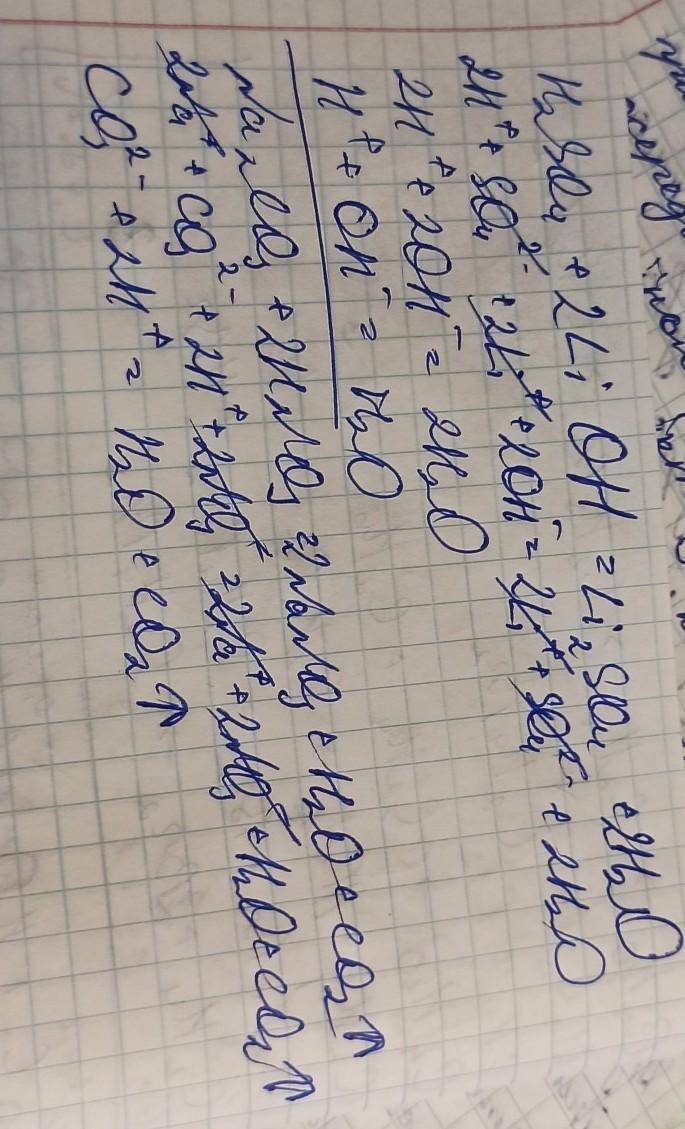 H₂SO₄ + 2LiOH = Li₂SO₄ + 2H₂O
2H⁺ + SO₄²⁻ + 2Li⁺ + 2OH⁻ = 2Li⁺ + SO₄²⁻ + 2H₂O
2H⁺ + 2OH⁻ = 2H₂O
H⁺ + OH⁻ = H₂O
Na₂CO₃ + 2HNO₃ = 2NaNO₃ + H₂O + CO₂↑
2Na⁺ + CO₃²⁻ + 2H⁺ + 2NO₃⁻ = 2Na⁺ + 2NO₃⁻ + H₂O + CO₂↑
CO₃²⁻ + 2H⁺ = H₂O + CO₂↑